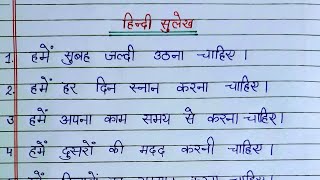 हिन्दी सुलेख
1. हमें सुबह जल्दी उठना चाहिए ।
2. हमें हर दिन स्नान करना चाहिए ।
3 हमें अपना काम समय से करना चाहिए ।
4 हमें दुसरों की मदद करनी चाहिए ।